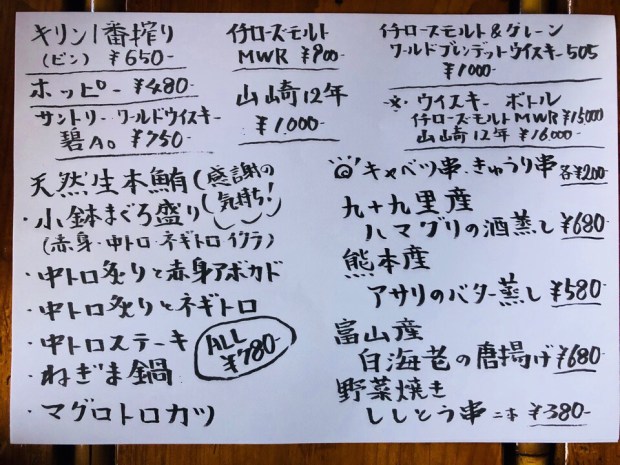 キリン1番搾り
(ビン) ¥650-
ホッピー ¥480-
サントリー ワールドウイスキー
碧Ao ¥750-
イチローズモルト
MWR ¥900-
山崎12年
¥1000-
イチローズモルト&グレーン
ワールドブレンデットウイスキー505
¥1000-
※ ウイスキー ボトル
イチローズモルトMWR ¥15000
山崎12年 ¥16000-
天然生本鮪(感謝の
気持ち!)
・小鉢まぐろ盛り
(赤身・中トロ・ネギトロ イクラ)
・中トロ炙りと赤身アボカド
・中トロ炙りとネギトロ
・中トロステーキ
・ねぎま鍋
・マグロトロカツ
ALL
¥780-
キャベツ串、きゅうり串 各¥200-
九十九里産
ハマグリの酒蒸し ¥680-
熊本産
アサリのバター蒸し ¥580-
富山産
白海老の唐揚げ ¥680-
野菜焼き
ししとう串 二本 ¥380-